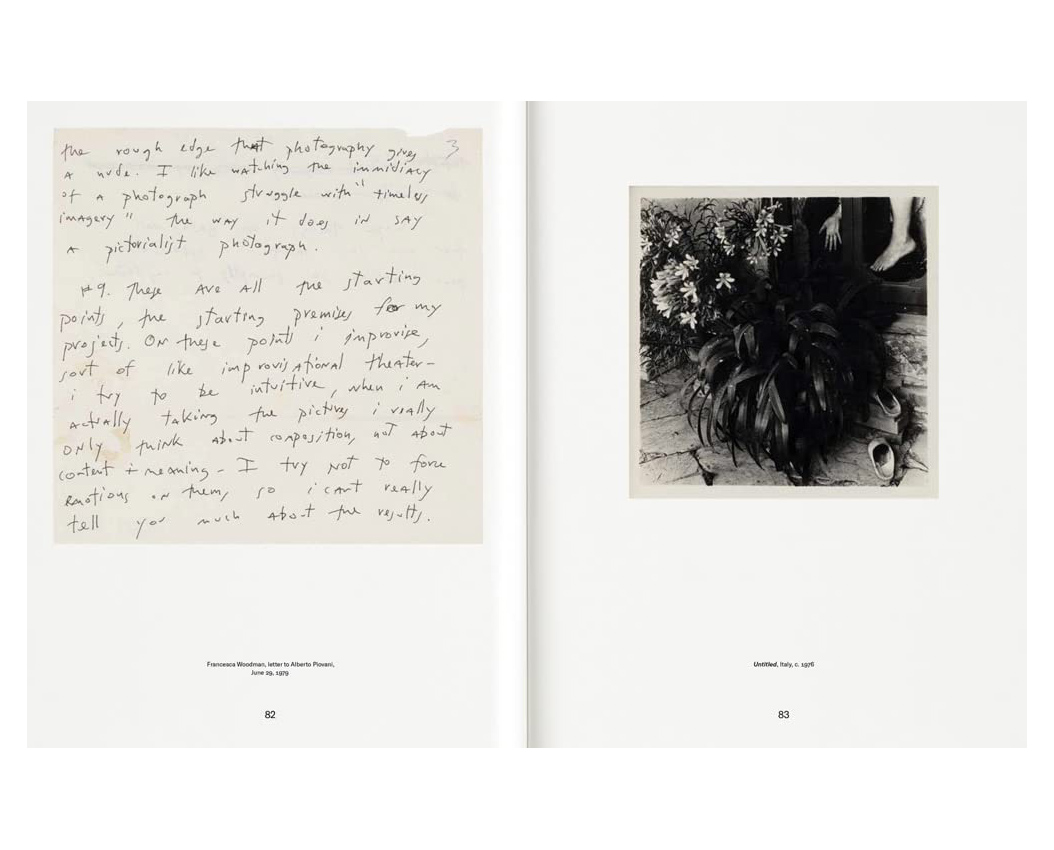 3
the rough edge that photography gives
a nude. I like watching the immidiacy
of a photograph struggle with "timeless
imagery" the way it does in say
a pictorialist photograph.
#9. These are all the starting
points, the starting premises for my
projects. On these points i improvise,
sort of like improvisational theater-
i try to be intuitive, when i am
actually taking the pictures i really
only think about composition, not about
content + meaning - I try not to force
emotions on them, so i cant really
tell you much about the results.
Francesca Woodman, letter to Alberto Piovani,
June 29, 1979
82
Untitled, Italy, c. 1976
83